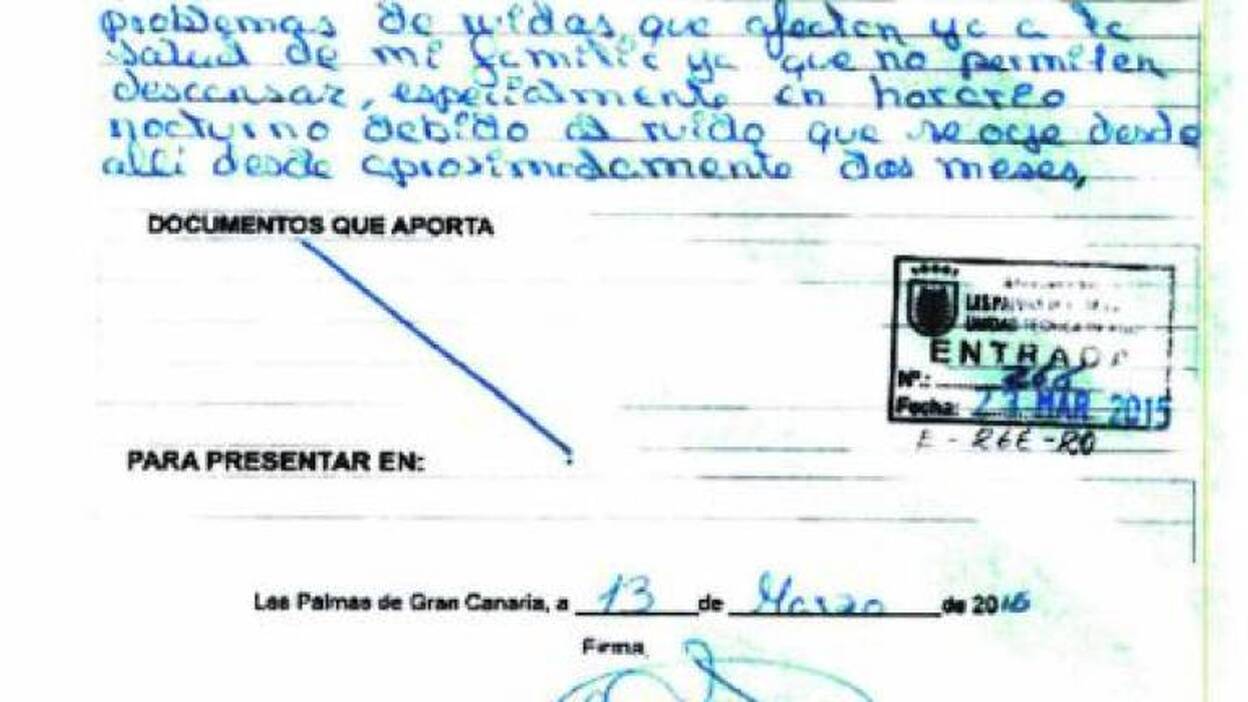 problemas de ruidos que afectan ya a la
salud de mi familia ya que no permiten
descansar, especialmente en horareo
nocturno debido al ruido que se oye desde
alli desde aproximadamente dos meses,
DOCUMENTOS QUE APORTA
LAS PALMAS DE
UNIDAD TÉCNICA
ENTRADA
Nº.: 266
Fecha: MAR 2015
E - REE - RO
PARA PRESENTAR EN:
Las Palmas de Gran Canaria, a 13 de Marzo de 2015
Firma